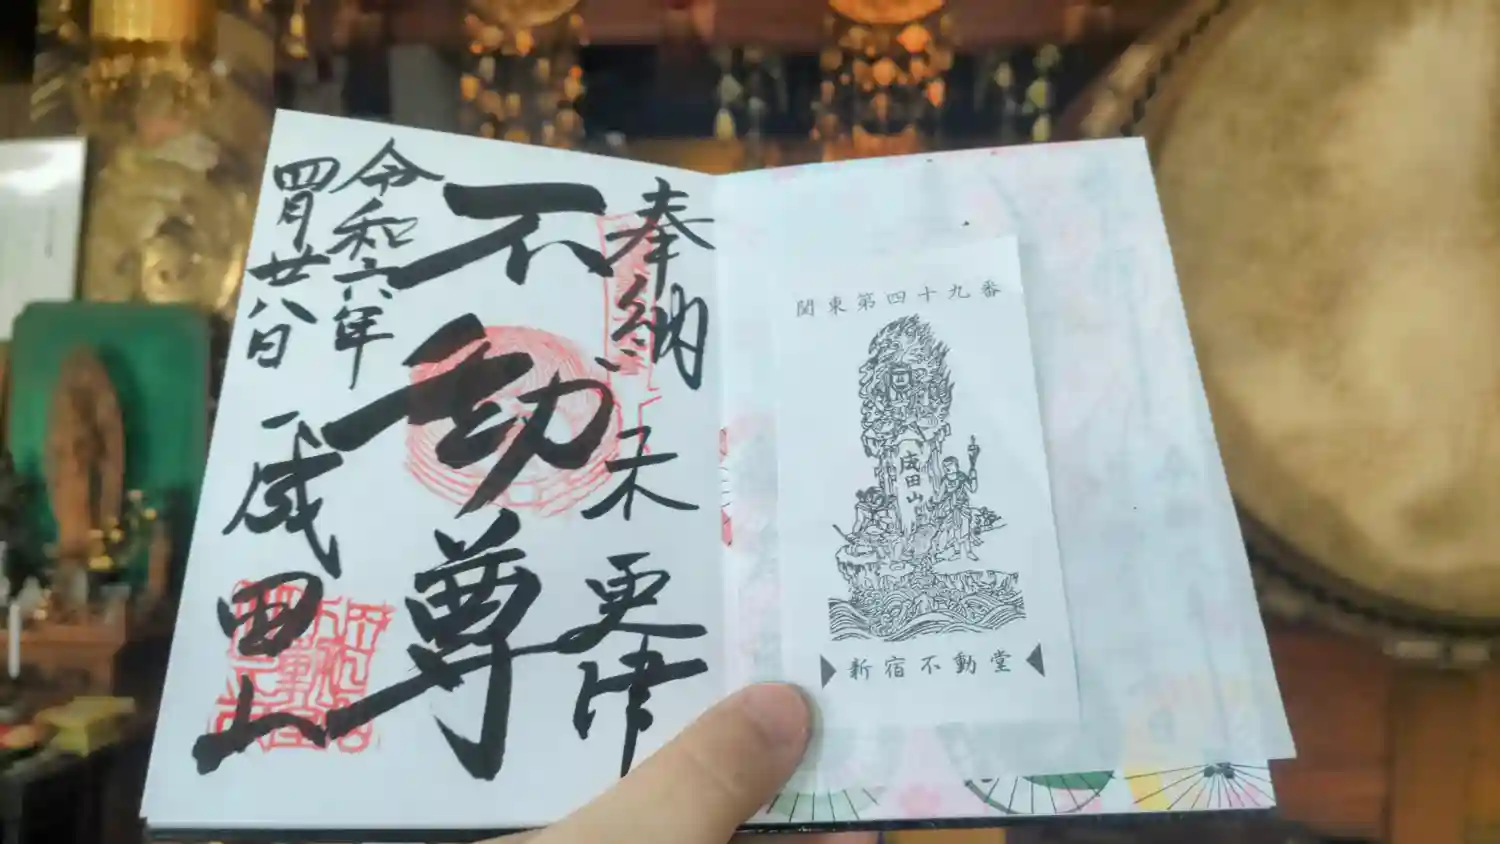 奉納
木更津
不動尊
令和六年
四月廿八日
成田山
関東第四十九番
成田山
新宿不動堂